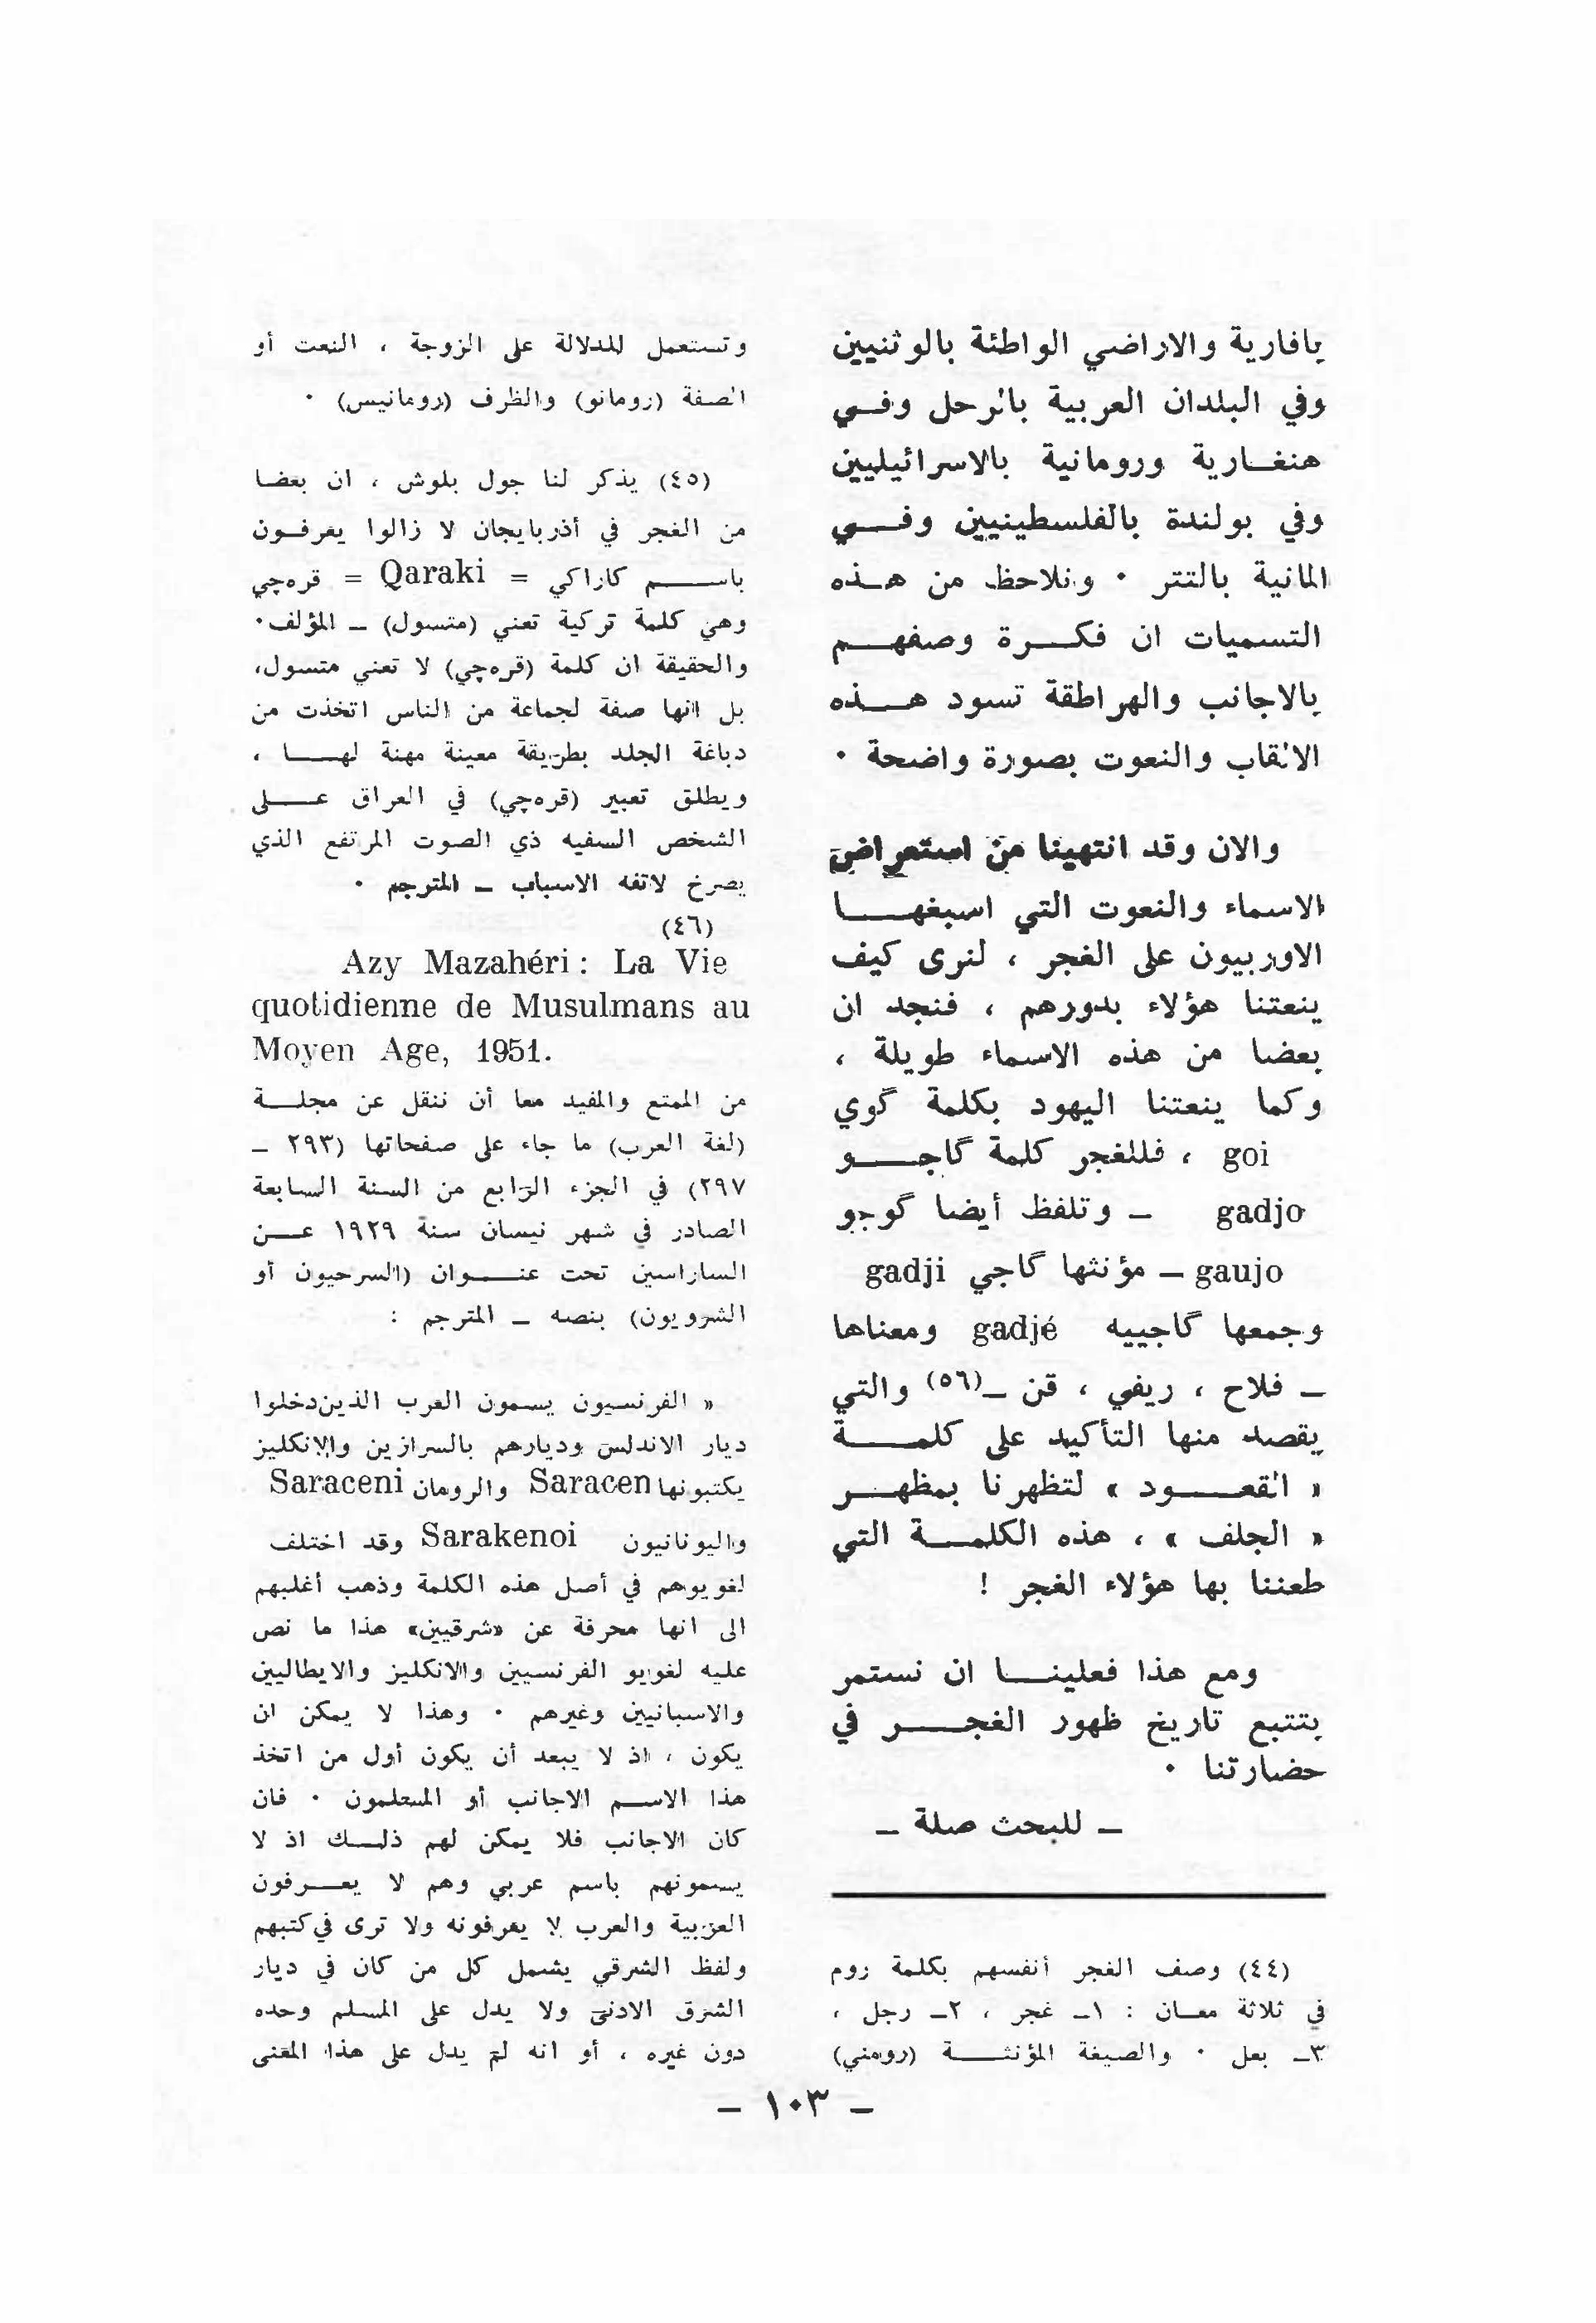 بافارية والاراضي الواطئة بالوثنيين
وفي البلدان العربية بالرحل وفي
هنغارية ورومانية بالاسرائيليين
وفي بولندة بالفلسطينيين وفي
المانية بالتتر · ونلاحظ من هذه
التسميات ان فكرة وصفهم
بالاجانب والهراطقة تسود هذه
الالقاب والنعوت بصورة واضحة ·
والان وقد انتهينا من استعراض
الاسماء والنعوت التي اسبغها
الاوربيون على الغجر ، لنرى كيف
ينعتنا هؤلاء بدورهم ، فنجد ان
بعضا من هذه الاسماء طويلة ،
وكما ينعتنا اليهود بكلمة گوي
goi ، فللغجر كلمة گاجو
gadjo – وتلفظ أيضا گوجو
gaujo – مؤنثها گاجي gadji
وجمعها گاجييه gadjé ومعناها
– فلاح ، ريفي ، قن –(٥٦) والتي
يقصد منها التأكيد على كلمة
« القعود » لتظهرنا بمظهر
« الجلف » ، هذه الكلمة التي
طعننا بها هؤلاء الغجر !
ومع هذا فعلينا ان نستمر
بتتبع تاريخ ظهور الغجر في
حضارتنا ·
– للبحث صلة –
(٤٤) وصف الغجر أنفسهم بكلمة روم
في ثلاثة معان : ١– غجر ، ٢– رجل ،
٣– بعل · والصيغة المؤنثة (رومني)
وتستعمل للدلالة على الزوجة ، النعت أو
الصفة (رومانو) والظرف (رومانيس) ·
(٤٥) يذكر لنا جول بلوش ، ان بعضا
من الغجر في أذربايجان لا زالوا يعرفون
باسم كاراكي = Qaraki = قرهچي
وهي كلمة تركية تعني (متسول) – المؤلف·
والحقيقة ان كلمة (قرهچي) لا تعني متسول،
بل انها صفة لجماعة من الناس اتخذت من
دباغة الجلد بطريقة معينة مهنة لها ،
ويطلق تعبير (قرهچي) في العراق على
الشخص السفيه ذي الصوت المرتفع الذي
يصرخ لاتفه الاسباب – المترجم ·
(٤٦)
Azy Mazahéri : La Vie
quotidienne de Musulmans au
Moyen Age, 1951.
من الممتع والمفيد معا أن ننقل عن مجلة
(لغة العرب) ما جاء على صفحاتها (٢٩٣ –
٢٩٧) في الجزء الرابع من السنة السابعة
الصادر في شهر نيسان سنة ١٩٢٩ عن
الساراسين تحت عنوان (السرحيون أو
الشرويون) بنصه – المترجم :
« الفرنسيون يسمون العرب الذين دخلوا
ديار الاندلس وديارهم بالسرازين والانكليز
يكتبونها Saracen والرومان Saraceni
واليونانيون Sarakenoi وقد اختلف
لغويوهم في أصل هذه الكلمة وذهب أغلبهم
الى انها محرفة عن «شرقيين» هذا ما نص
عليه لغويو الفرنسيين والانكليز والايطاليين
والاسبانيين وغيرهم · وهذا لا يمكن ان
يكون ، اذ لا يبعد أن يكون أول من اتخذ
هذا الاسم الاجانب أو المسلمون · فان
كان الاجانب فلا يمكن لهم ذلك اذ لا
يسمونهم باسم عربي وهم لا يعرفون
العربية والعرب لا يعرفونه ولا ترى في كتبهم
ولفظ الشرقي يشمل كل من كان في ديار
الشرق الادنى ولا يدل على المسلم وحده
دون غيره ، أو انه لم يدل على هذا المعنى
– ١٠٣ –